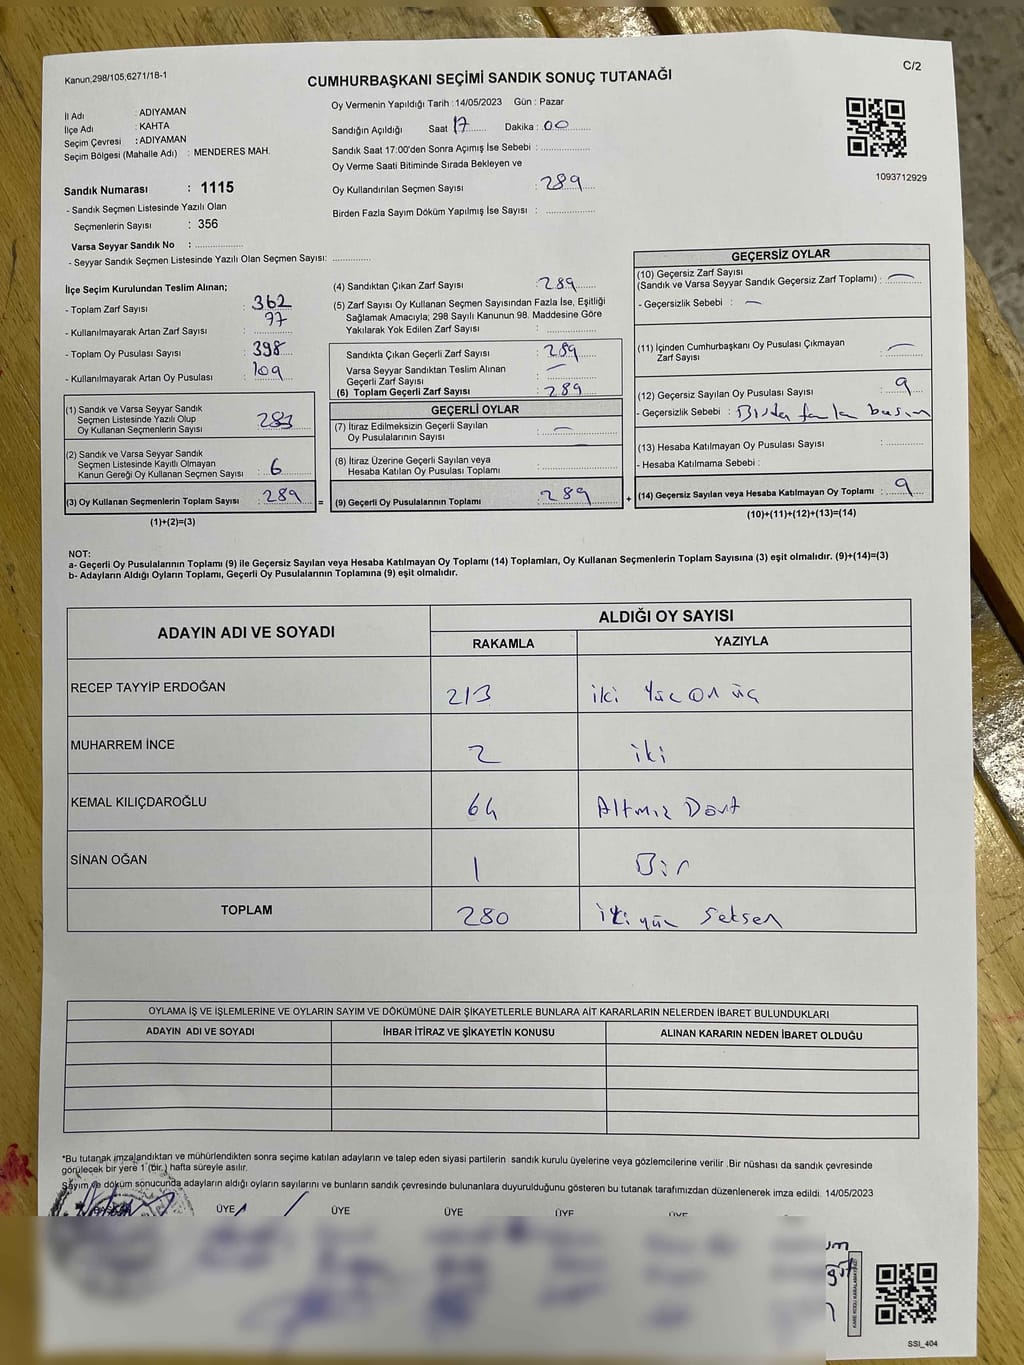 Kanun;298/105,6271/18-1
C/2
CUMHURBAŞKANI SEÇİMİ SANDIK SONUÇ TUTANAĞI
İl Adı : ADIYAMAN
İlçe Adı : KAHTA
Seçim Çevresi : ADIYAMAN
Seçim Bölgesi (Mahalle Adı) : MENDERES MAH.
Sandık Numarası : 1115
- Sandık Seçmen Listesinde Yazılı Olan
Seçmenlerin Sayısı : 356
Varsa Seyyar Sandık No : ..................
- Seyyar Sandık Seçmen Listesinde Yazılı Olan Seçmen Sayısı: ..............
Oy Vermenin Yapıldığı Tarih : 14/05/2023 Gün : Pazar
Sandığın Açıldığı Saat 17 Dakika : 00
Sandık Saat 17:00'den Sonra Açımış İse Sebebi : ..................
Oy Verme Saati Bitiminde Sırada Bekleyen ve
Oy Kullandırılan Seçmen Sayısı : 289
Birden Fazla Sayım Döküm Yapılmış İse Sayısı : ..................
1093712929
İlçe Seçim Kurulundan Teslim Alınan;
- Toplam Zarf Sayısı : 362
- Kullanılmayarak Artan Zarf Sayısı : 77
- Toplam Oy Pusulası Sayısı : 398
- Kullanılmayarak Artan Oy Pusulası : 109
(1) Sandık ve Varsa Seyyar Sandık
Seçmen Listesinde Yazılı Olup
Oy Kullanan Seçmenlerin Sayısı : 283
(2) Sandık ve Varsa Seyyar Sandık
Seçmen Listesinde Kayıtlı Olmayan
Kanun Gereği Oy Kullanan Seçmen Sayısı : 6
(3) Oy Kullanan Seçmenlerin Toplam Sayısı : 289 =
(1)+(2)=(3)
(4) Sandıktan Çıkan Zarf Sayısı : 289
(5) Zarf Sayısı Oy Kullanan Seçmen Sayısından Fazla İse, Eşitliği
Sağlamak Amacıyla; 298 Sayılı Kanunun 98. Maddesine Göre
Yakılarak Yok Edilen Zarf Sayısı : ..................
Sandıkta Çıkan Geçerli Zarf Sayısı : 289
Varsa Seyyar Sandıktan Teslim Alınan
Geçerli Zarf Sayısı : —
(6) Toplam Geçerli Zarf Sayısı : 289
GEÇERLİ OYLAR
(7) İtiraz Edilmeksizin Geçerli Sayılan
Oy Pusulalarının Sayısı : —
(8) İtiraz Üzerine Geçerli Sayılan veya
Hesaba Katılan Oy Pusulası Toplamı : ..................
(9) Geçerli Oy Pusulalarının Toplamı : 289 +
GEÇERSİZ OYLAR
(10) Geçersiz Zarf Sayısı
(Sandık ve Varsa Seyyar Sandık Geçersiz Zarf Toplamı) : —
- Geçersizlik Sebebi : —
(11) İçinden Cumhurbaşkanı Oy Pusulası Çıkmayan
Zarf Sayısı : —
(12) Geçersiz Sayılan Oy Pusulası Sayısı : 9
- Geçersizlik Sebebi :
(13) Hesaba Katılmayan Oy Pusulası Sayısı : ..............
- Hesaba Katılmama Sebebi :
(14) Geçersiz Sayılan veya Hesaba Katılmayan Oy Toplamı : 9
(10)+(11)+(12)+(13)=(14)
NOT:
a- Geçerli Oy Pusulalarının Toplamı (9) ile Geçersiz Sayılan veya Hesaba Katılmayan Oy Toplamı (14) Toplamları, Oy Kullanan Seçmenlerin Toplam Sayısına (3) eşit olmalıdır. (9)+(14)=(3)
b- Adayların Aldığı Oyların Toplamı, Geçerli Oy Pusulalarının Toplamına (9) eşit olmalıdır.
ADAYIN ADI VE SOYADI ALDIĞI OY SAYISI
RAKAMLA YAZIYLA
RECEP TAYYİP ERDOĞAN 213 iki Yüz On üç
MUHARREM İNCE 2 iki
KEMAL KILIÇDAROĞLU 64 Altmız Dört
SİNAN OĞAN 1 Bir
TOPLAM 280 iki yüz seksen
OYLAMA İŞ VE İŞLEMLERİNE VE OYLARIN SAYIM VE DÖKÜMÜNE DAİR ŞİKAYETLERLE BUNLARA AİT KARARLARIN NELERDEN İBARET BULUNDUKLARI
ADAYIN ADI VE SOYADI İHBAR İTİRAZ VE ŞİKAYETİN KONUSU ALINAN KARARIN NEDEN İBARET OLDUĞU
*Bu tutanak imzalandıktan ve mühürlendikten sonra seçime katılan adayların ve talep eden siyasi partilerin sandık kurulu üyelerine veya gözlemcilerine verilir .Bir nüshası da sandık çevresinde
görülecek bir yere 1 (bir ) hafta süreyle asılır.
Sayım ve döküm sonucunda adayların aldığı oyların sayılarını ve bunların sandık çevresinde bulunanlara duyurulduğunu gösteren bu tutanak tarafımızdan düzenlenerek imza edildi. 14/05/2023
BAŞKAN ÜYE ÜYE ÜYE ÜYE ÜYE
SSI_404